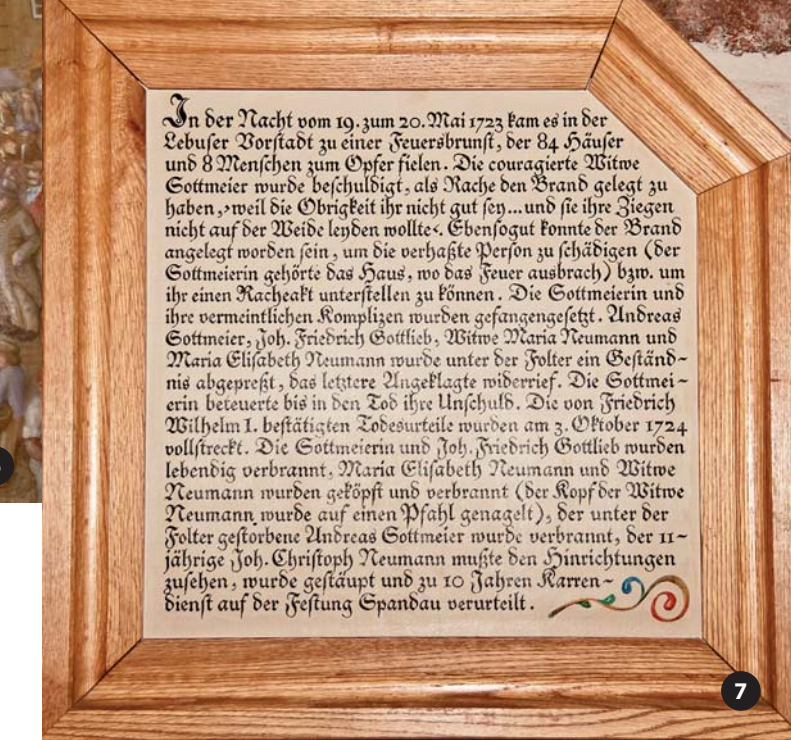 In der Nacht vom 19. zum 20. Mai 1723 kam es in der
Lebuser Vorstadt zu einer Feuersbrunst, der 84 Häuser
und 8 Menschen zum Opfer fielen. Die couragierte Witwe
Gottmeier wurde beschuldigt, als Rache den Brand gelegt zu
haben, ›weil die Obrigkeit ihr nicht gut sey...und sie ihre Ziegen
nicht auf der Weide leyden wollte‹. Ebensogut konnte der Brand
angelegt worden sein, um die verhaßte Person zu schädigen (der
Gottmeierin gehörte das Haus, wo das Feuer ausbrach) bzw. um
ihr einen Racheakt unterstellen zu können. Die Gottmeierin und
ihre vermeintlichen Komplizen wurden gefangengesetzt. Andreas
Gottmeier, Joh. Friedrich Gottlieb, Witwe Maria Neumann und
Maria Elisabeth Neumann wurde unter der Folter ein Geständ-
nis abgepreßt, das letztere Angeklagte widerrief. Die Gottmei-
erin beteuerte bis in den Tod ihre Unschuld. Die von Friedrich
Wilhelm I. bestätigten Todesurteile wurden am 3. Oktober 1724
vollstreckt. Die Gottmeierin und Joh. Friedrich Gottlieb wurden
lebendig verbrannt, Maria Elisabeth Neumann und Witwe
Neumann wurden geköpft und verbrannt (der Kopf der Witwe
Neumann wurde auf einen Pfahl genagelt), der unter der
Folter gestorbene Andreas Gottmeier wurde verbrannt, der 11-
jährige Joh. Christoph Neumann mußte den Hinrichtungen
zusehen, wurde gestäupt und zu 10 Jahren Karren-
dienst auf der Festung Spandau verurteilt.
7